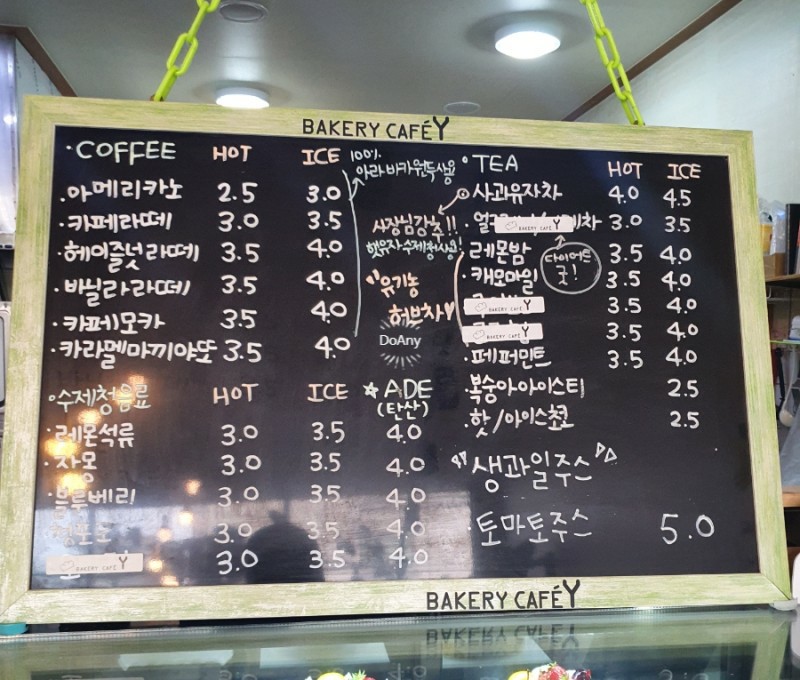 BAKERY CAFÉ Y
·COFFEE HOT ICE
·아메리카노 2.5 3.0
·카페라떼 3.0 3.5
·헤이즐넛라떼 3.5 4.0
·바닐라라떼 3.5 4.0
·카페모카 3.5 4.0
·카라멜마끼야또 3.5 4.0
100%
아라비카원두사용
사장님강추!!
햇유자수제청사용!
유기농
허브차
DoAny
·수제청음료 HOT ICE ☆ADE
(탄산)
·레몬석류 3.0 3.5 4.0
·자몽 3.0 3.5 4.0
·블루베리 3.0 3.5 4.0
·청포도 3.0 3.5 4.0
BAKERY CAFÉ Y 3.0 3.5 4.0
·TEA HOT ICE
사과유자차 4.0 4.5
BAKERY CAFÉ Y 3.0 3.5
레몬밤 3.5 4.0
·캐모마일 3.5 4.0
다이어트
굿!
BAKERY CAFÉ Y 3.5 4.0
BAKERY CAFÉ Y 3.5 4.0
·페퍼민트 3.5 4.0
복숭아아이스티 2.5
·핫/아이스초코 2.5
생과일주스
·토마토주스 5.0
BAKERY CAFÉ Y